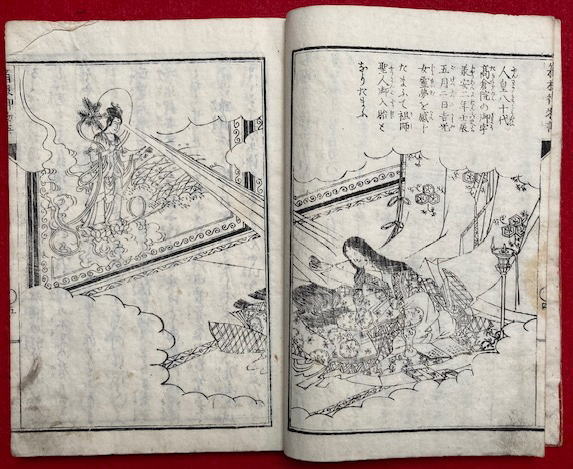 人皇八十代
高倉院の御宇
承安二年壬辰
五月二日吉光
女靈夢を感じ
たまふて祖師
聖人御入胎と
なりたまふ